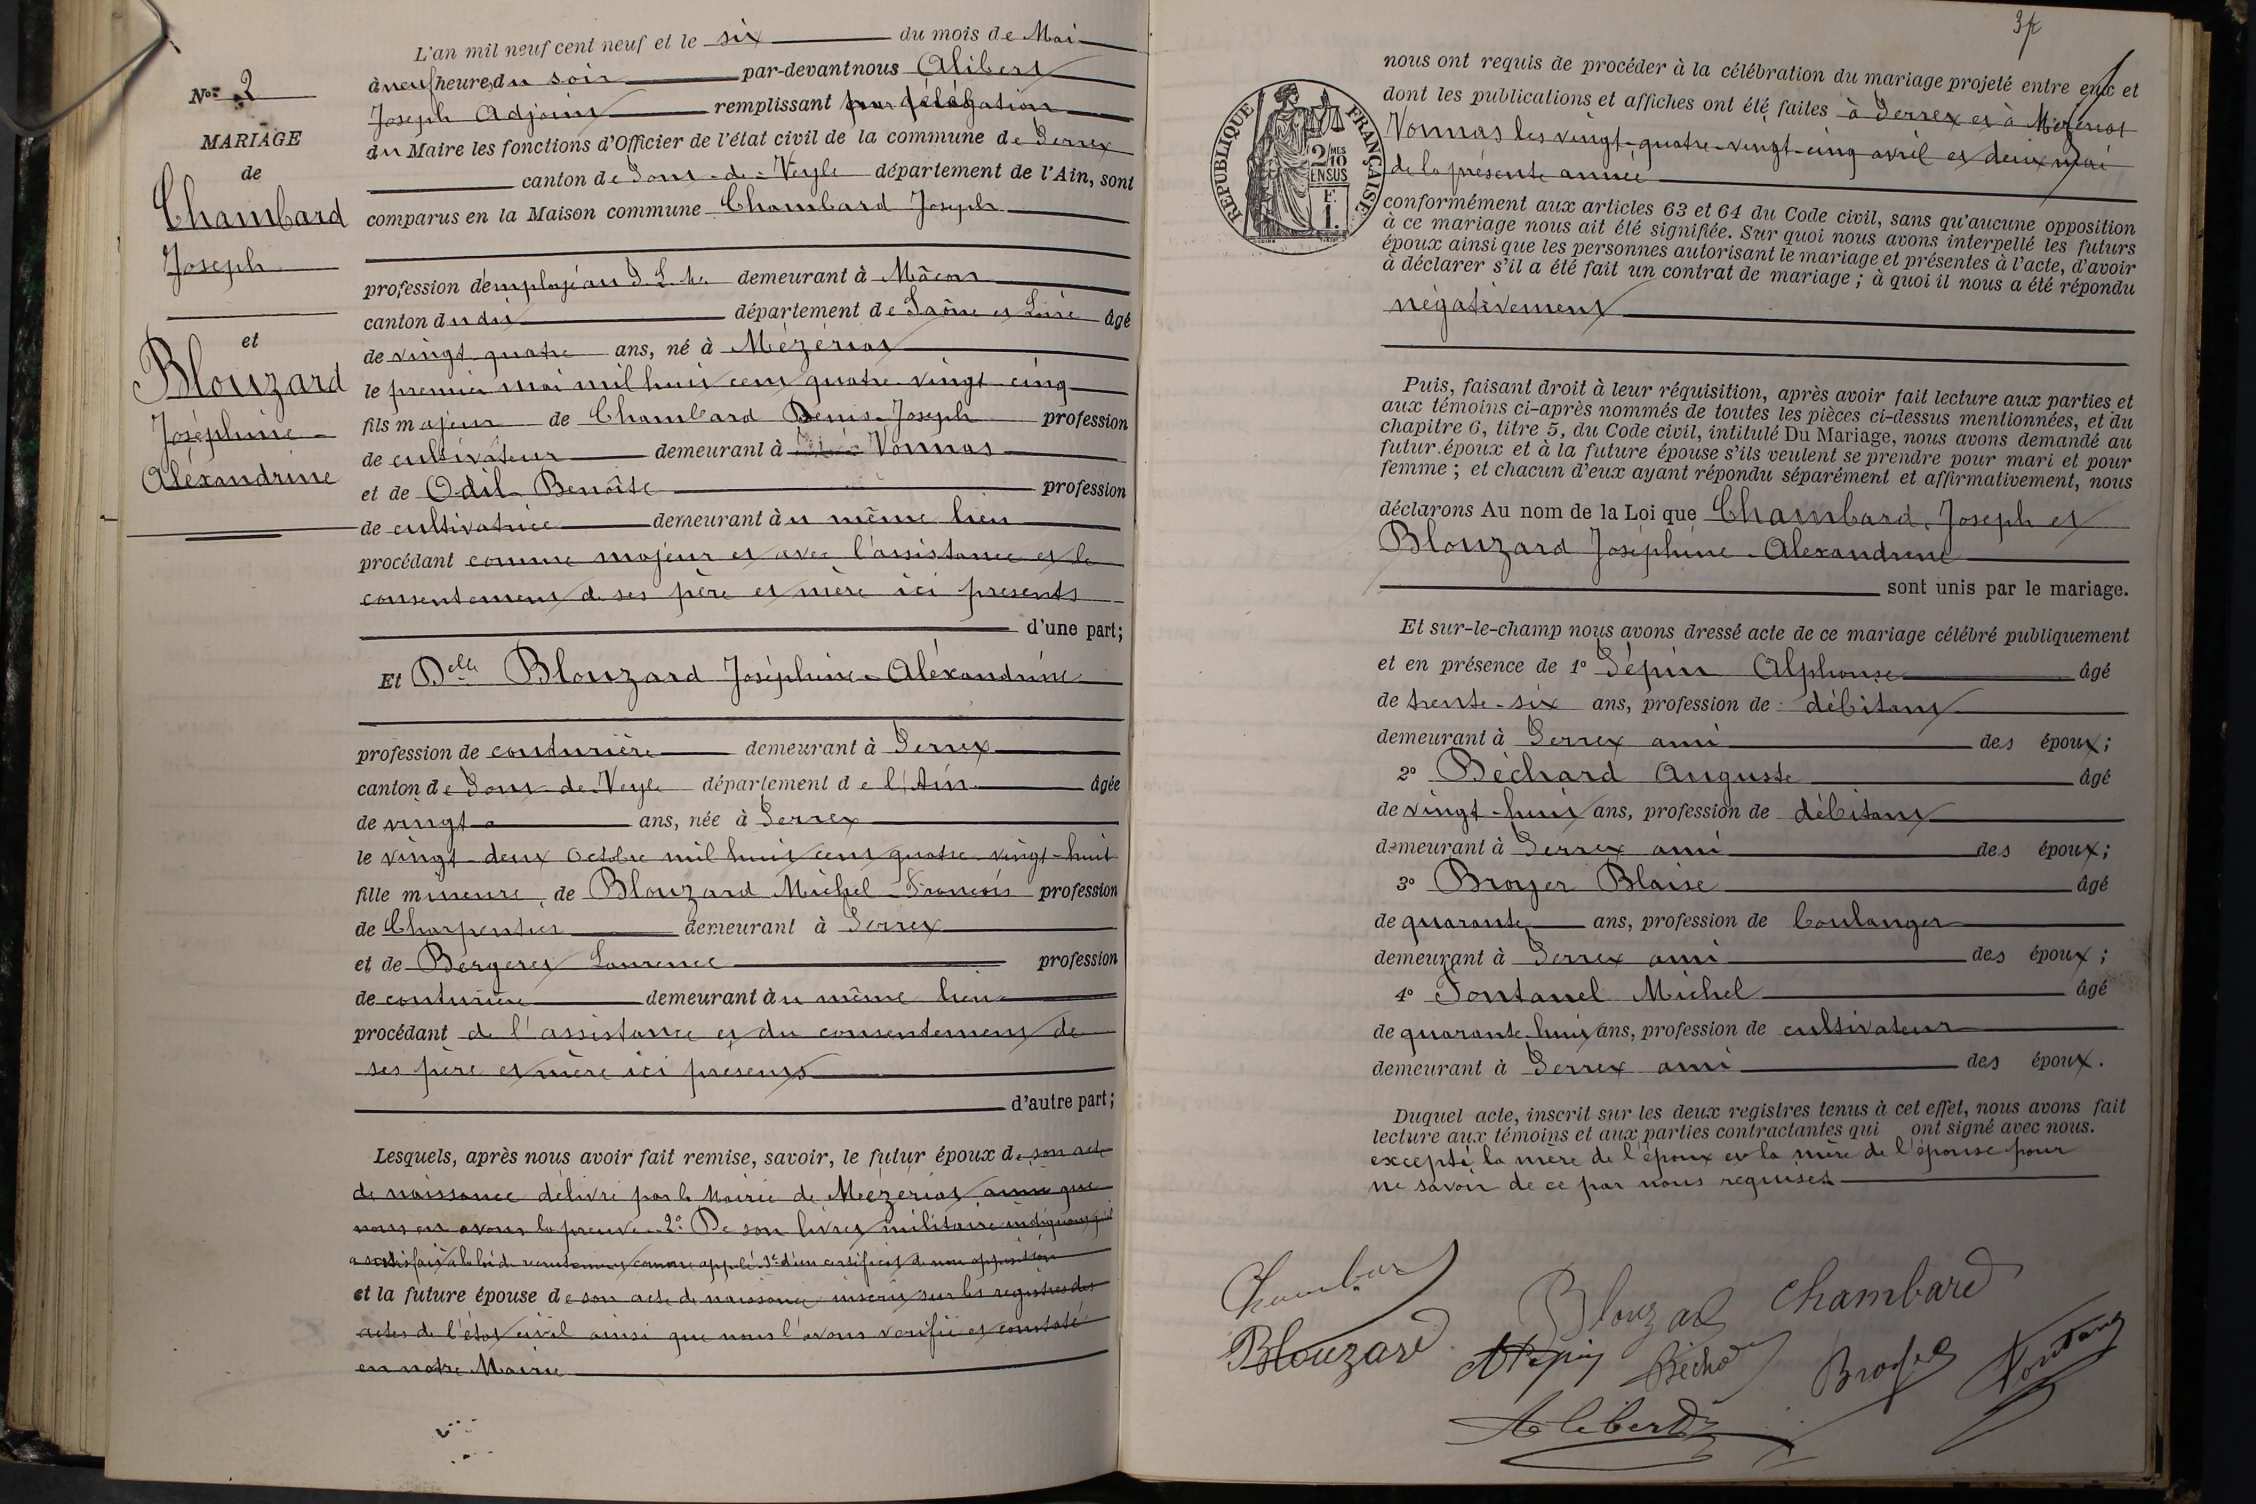 L'an mil neuf cent neuf et le six du mois de Mai
à neuf heures du soir par-devant nous Alibert
Joseph Adjoint remplissant par délégation
du Maire les fonctions d'Officier de l'état civil de la commune de Perrex
canton de Pont-de-Veyle département de l'Ain, sont
comparus en la Maison commune Chambard Joseph
N° 2
MARIAGE
de
Chambard
Joseph
et
Blouzard
Joséphine
Aléxandrine
profession d'employé au P. L. M. demeurant à Mâcon
canton du dit département de Saône et Loire âgé
de vingt quatre ans, né à Mézériat
le premier mai mil huit cent quatre vingt cinq
fils majeur de Chambard Denis Joseph profession
de cultivateur demeurant à Vonnas
et de Odil Benoîte profession
de cultivatrice demeurant au même lieu
procédant comme majeur et avec l'assistance et le
consentement de ses père et mère ici présents
d'une part;
Et Delle Blouzard Joséphine-Aléxandrine
profession de couturière demeurant à Perrex
canton de Pont-de-Veyle département de l'Ain âgée
de vingt ans, née à Perrex
le vingt-deux Octobre mil huit cent quatre vingt-huit
fille mineure de Blouzard Michel François profession
de Charpentier demeurant à Perrex
et de Bergeret Laurence profession
de couturière demeurant au même lieu
procédant de l'assistance et du consentement de
ses père et mère ici présents
d'autre part;
Lesquels, après nous avoir fait remise, savoir, le futur époux de son acte
de naissance délivré par la Mairie de Mézériat ainsi que
nous en avons la preuve 2° De son livret militaire indiquant qu'il
a satisfait à la loi du recrutement comme appelé 3° d'un certificat de non opposition
et la future épouse de son acte de naissance inscrit sur les registres des
actes de l'état civil ainsi que nous l'avons vérifié et constaté
en notre Mairie
nous ont requis de procéder à la célébration du mariage projeté entre eux et
dont les publications et affiches ont été faites à Perrex et à Mézériat
Vonnas les vingt-quatre-vingt-cinq avril et deux Mai
de la présente année
RÉPUBLIQUE FRANÇAISE
2/10 MES
EN SUS
F.
1.
conformément aux articles 63 et 64 du Code civil, sans qu'aucune opposition
à ce mariage nous ait été signifiée. Sur quoi nous avons interpellé les futurs
époux ainsi que les personnes autorisant le mariage et présentes à l'acte, d'avoir
à déclarer s'il a été fait un contrat de mariage ; à quoi il nous a été répondu
négativement
Puis, faisant droit à leur réquisition, après avoir fait lecture aux parties et
aux témoins ci-après nommés de toutes les pièces ci-dessus mentionnées, et du
chapitre 6, titre 5, du Code civil, intitulé Du Mariage, nous avons demandé au
futur époux et à la future épouse s'ils veulent se prendre pour mari et pour
femme ; et chacun d'eux ayant répondu séparément et affirmativement, nous
déclarons Au nom de la Loi que Chambard, Joseph et
Blouzard Joséphine-Alexandrine
sont unis par le mariage.
Et sur-le-champ nous avons dressé acte de ce mariage célébré publiquement
et en présence de 1° Pépin Alphonse âgé
de trente-six ans, profession de débitant
demeurant à Perrex ami des époux;
2° Béchard Auguste âgé
de vingt-huit ans, profession de débitant
demeurant à Perrex ami des époux;
3° Broyer Blaise âgé
de quarante ans, profession de boulanger
demeurant à Perrex ami des époux ;
4° Fontanel Michel âgé
de quarante huit ans, profession de cultivateur
demeurant à Perrex ami des époux.
Duquel acte, inscrit sur les deux registres tenus à cet effet, nous avons fait
lecture aux témoins et aux parties contractantes qui ont signé avec nous.
excepté la mère de l'époux et la mère de l'épouse pour
ne savoir de ce par nous requises
Chambard
Blouzard
Chambard
Blouzard
A Pépin
Béchard
Broyer
Alibert